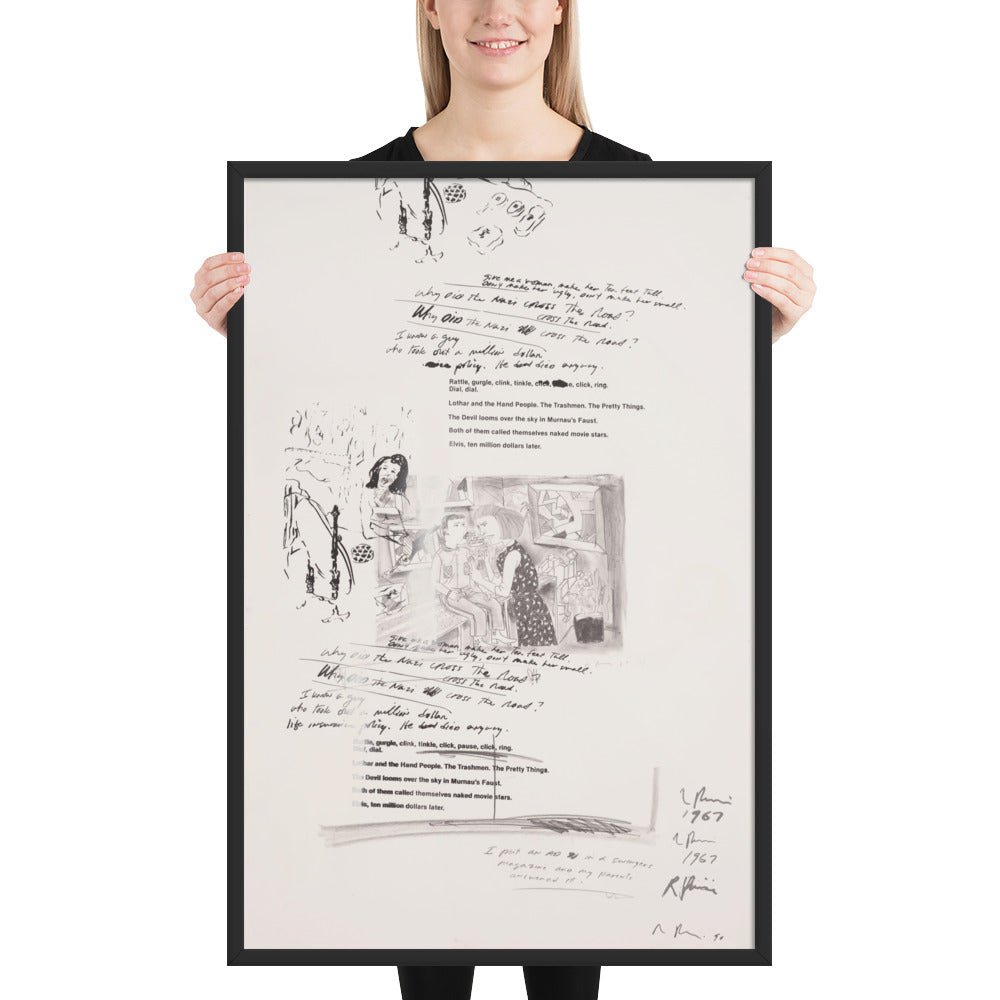 Give me a woman, make her Ten feet Tall.
Don't make her ugly, don't make her small.
Why DID the Nazi CROSS The Road?
CROSS the Road.
Why DID The Nazi CROSS The Road?
I know a guy
who took out a million dollar
policy. He died anyway.
Rattle, gurgle, clink, tinkle, click, click, ring.
Dial, dial.
Lothar and the Hand People. The Trashmen. The Pretty Things.
The Devil looms over the sky in Murnau's Faust.
Both of them called themselves naked movie stars.
Elvis, ten million dollars later.
Give me a woman, make her Ten feet Tall.
Don't make her ugly, don't make her small.
Why DID the Nazi CROSS The Road?
CROSS the Road.
Why DID the Nazi CROSS the Road?
I know a guy
who took out a million dollar
life insurance policy. He died anyway.
Rattle, gurgle, clink, tinkle, click, pause, click, ring.
Dial, dial.
Lothar and the Hand People. The Trashmen. The Pretty Things.
The Devil looms over the sky in Murnau's Faust.
Both of them called themselves naked movie stars.
Elvis, ten million dollars later.
1967
1967
I put an AD in a swingers
magazine and my parents
answered it.